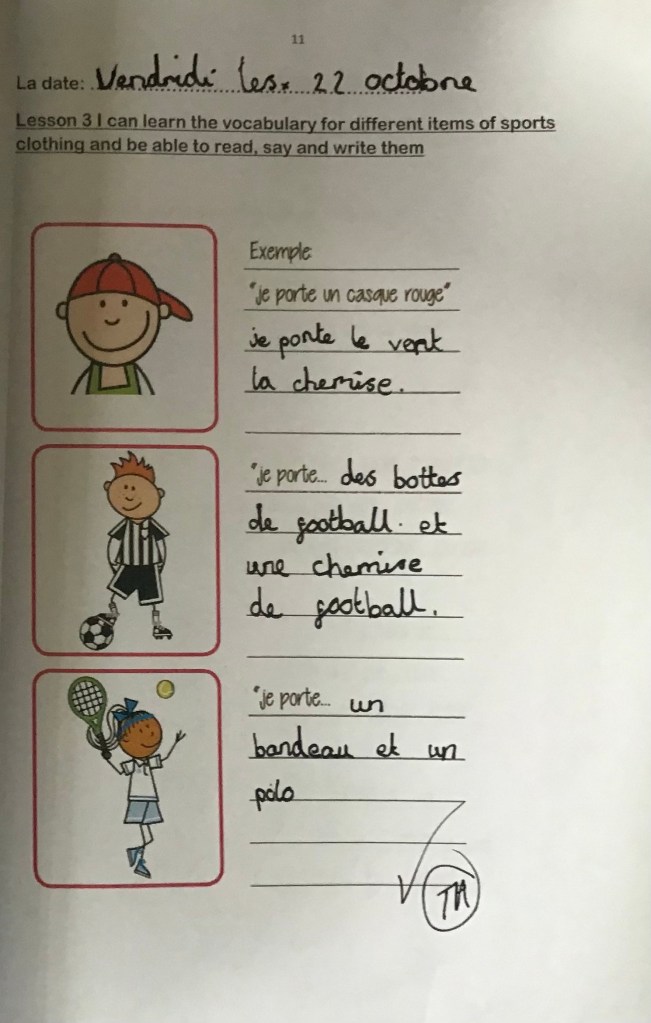 11
La date: Vendridi les 22 octobre
Lesson 3 I can learn the vocabulary for different items of sports
clothing and be able to read, say and write them
Exemple
"je porte un casque rouge"
je porte le vert
la chemise.
"je porte... des bottes
de football. et
une chemise
de football.
"je porte... un
bandeau et un
polo
TA